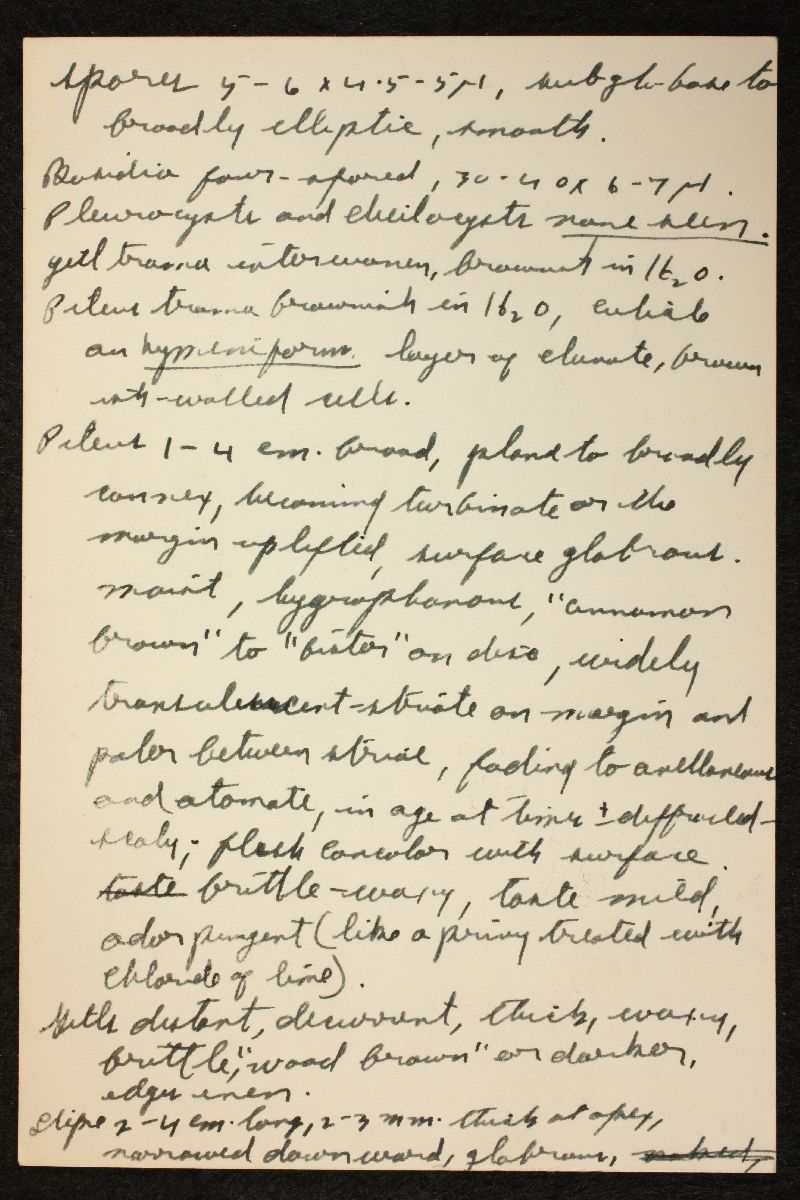 spores 5-6 x 4.5-5 µ, subglobose to
broadly elliptic, smooth.
Basidia four-spored, 30-40 x 6-7 µ.
Pleurocysts and cheilocysts none seen.
gill trama interwoven, brownish in H₂O.
Pileus trama brownish in H₂O, cuticle
an hymeniform layer of clavate, brown
ish-walled cells.
Pileus 1-4 cm. broad, plane to broadly
convex, becoming turbinate or the
margin uplifted, surface glabrous.
moist, hygrophanous, "cinnamon
brown" to "bister" on disc, widely
translucent-striate on margin and
paler between striae, fading to avellaneous
and atomate, in age at times ± diffracted-
scaly; flesh concolor with surface.
taste brittle-waxy, taste mild,
odor pungent (like a privy treated with
chloride of lime).
Gills distant, decurrent, thick, waxy,
brittle, "wood brown" or darker,
edges even.
Stipe 2-4 cm. long, 2-3 mm. thick at apex,
narrowed downward, glabrous, naked,